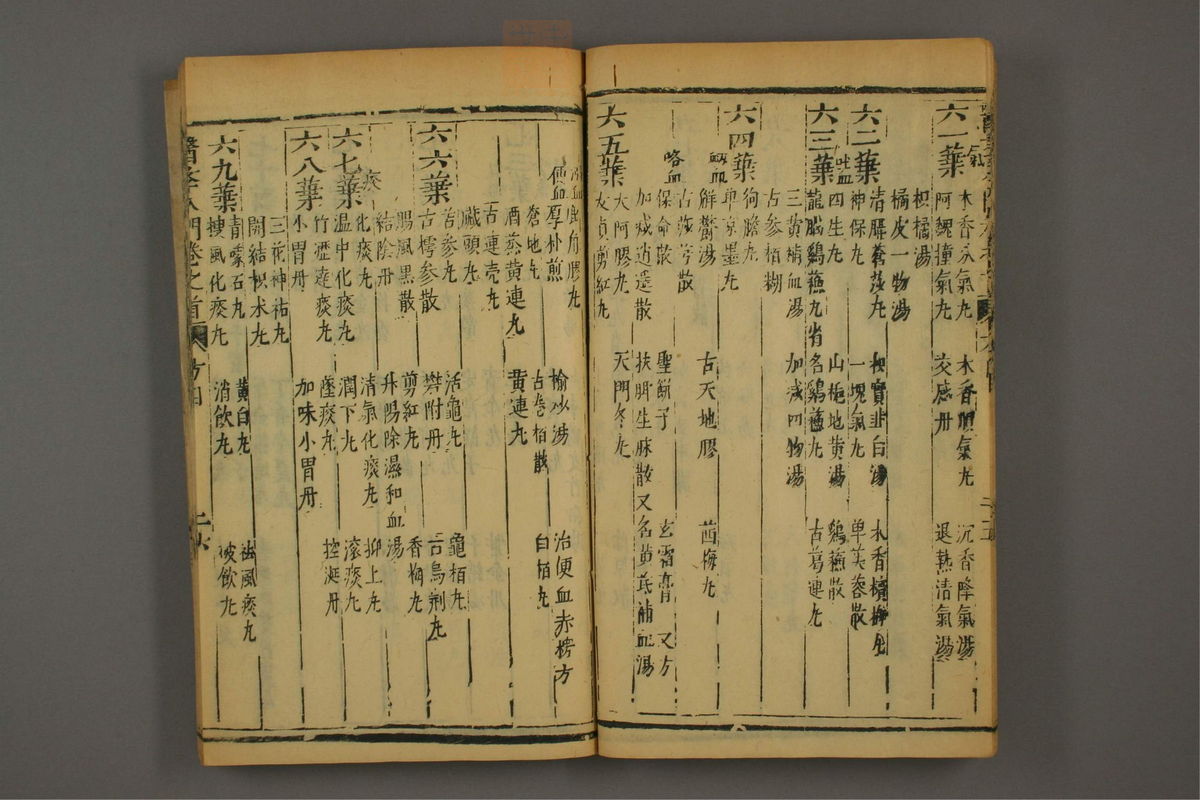 六一葉
氣
木香分氣丸 木香順氣丸 沉香降氣湯
阿魏撞氣丸 交感丹 退熱清氣湯
枳橘湯
橘皮一物湯
六二葉
清膈蒼莎丸 枳實韭白湯 木香檳榔丸
神保丸 一塊氣丸 單芙蓉散
吐血
四生丸 山梔地黃湯 鷄蘇散
六三葉
龍腦鷄蘇丸省名鷄蘇丸 古葛連丸
三黃補血湯 加減四物湯
古參栢糊
狗膽丸
六四葉
單京墨丸
衂血
解鬱湯 古天地膠 茜梅丸
古莎芎散
咯血
保命散 聖餅子 玄霜膏 又方
加減逍遙散 扶脾生脉散又名黃芪補血湯
六五葉
大阿膠丸 天門冬丸
女貞剪紅丸
角膠丸
便血
厚朴煎 榆砂湯 治便血赤楞方
蒼地丸 古栢散 白栢丸
酒蒸黃連丸 黃連丸
古連壳丸
臟頭丸
六六葉
苦參丸 活龜丸 龜栢丸
古樗參散 礬附丹 古烏荆丸
腸風黑散 剪紅丸 香梅丸
結陰丹 升陽除濕和血湯
痰
化痰丸 清氣化痰丸 抑上丸
六七葉
溫中化痰丸 潤下丸 滾痰丸
竹瀝達痰丸 墜痰丸 控涎丹
六八葉
小胃丹 加味小胃丹
三花神祐丸
開結枳术丸
青礞石丸 黃白丸 祛風痰丸
六九葉
搜風化痰丸 消飲丸 破飲丸
醫學入門卷之首 方四 二六